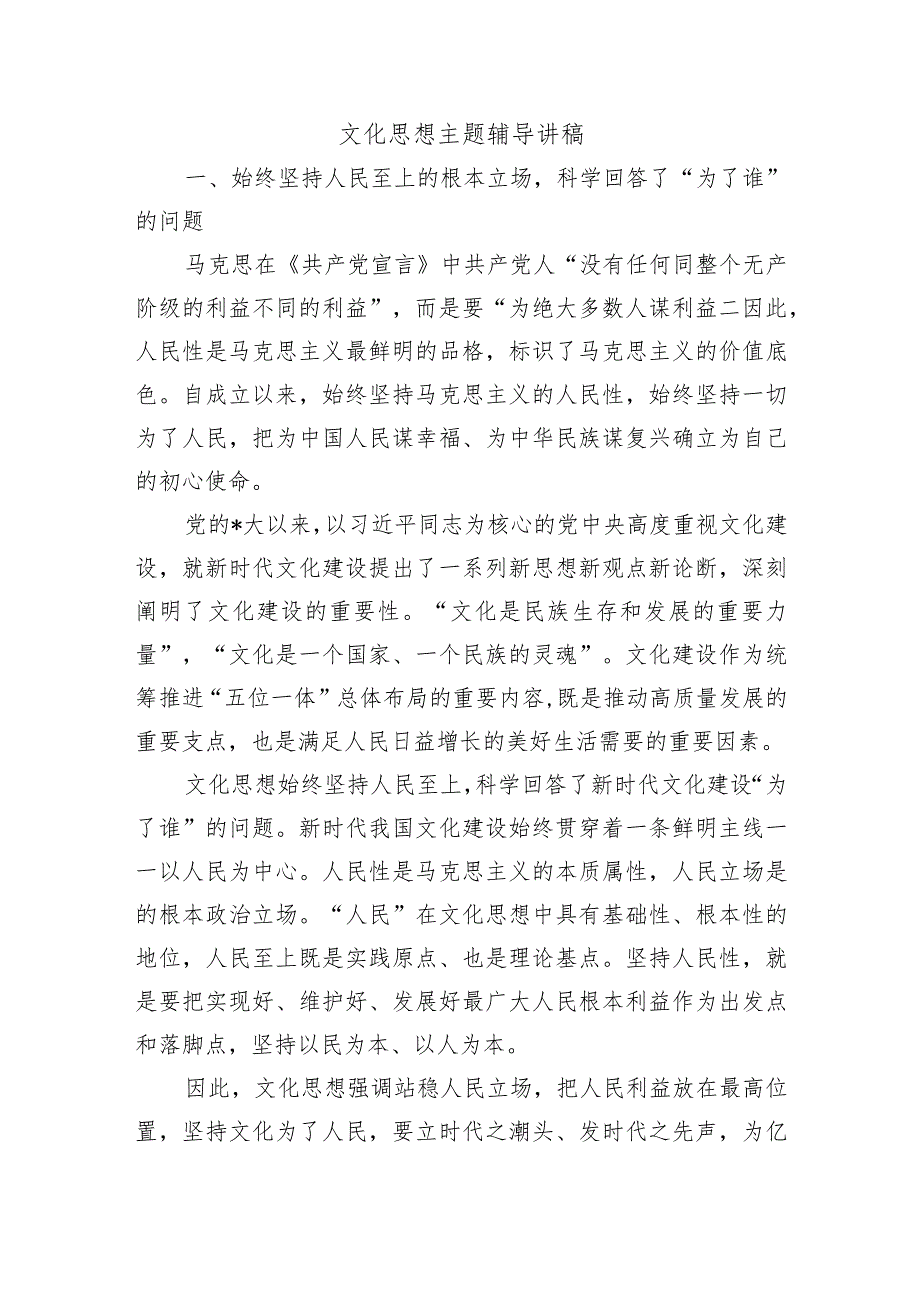 文化思想主题辅导讲稿
一、始终坚持人民至上的根本立场，科学回答了“为了谁”
的问题
马克思在《共产党宣言》中共产党人“没有任何同整个无产
阶级的利益不同的利益”，而是要“为绝大多数人谋利益二因此，
人民性是马克思主义最鲜明的品格，标识了马克思主义的价值底
色。自成立以来，始终坚持马克思主义的人民性，始终坚持一切
为了人民，把为中国人民谋幸福、为中华民族谋复兴确立为自己
的初心使命。
党的*大以来，以习近平同志为核心的党中央高度重视文化建
设，就新时代文化建设提出了一系列新思想新观点新论断，深刻
阐明了文化建设的重要性。“文化是民族生存和发展的重要力
量”，“文化是一个国家、一个民族的灵魂”。文化建设作为统
筹推进“五位一体”总体布局的重要内容,既是推动高质量发展的
重要支点，也是满足人民日益增长的美好生活需要的重要因素。
文化思想始终坚持人民至上，科学回答了新时代文化建设“为
了谁”的问题。新时代我国文化建设始终贯穿着一条鲜明主线一
一以人民为中心。人民性是马克思主义的本质属性，人民立场是
的根本政治立场。“人民”在文化思想中具有基础性、根本性的
地位，人民至上既是实践原点、也是理论基点。坚持人民性，就
是要把实现好、维护好、发展好最广大人民根本利益作为出发点
和落脚点，坚持以民为本、以人为本。
因此，文化思想强调站稳人民立场，把人民利益放在最高位
置，坚持文化为了人民，要立时代之潮头、发时代之先声，为亿